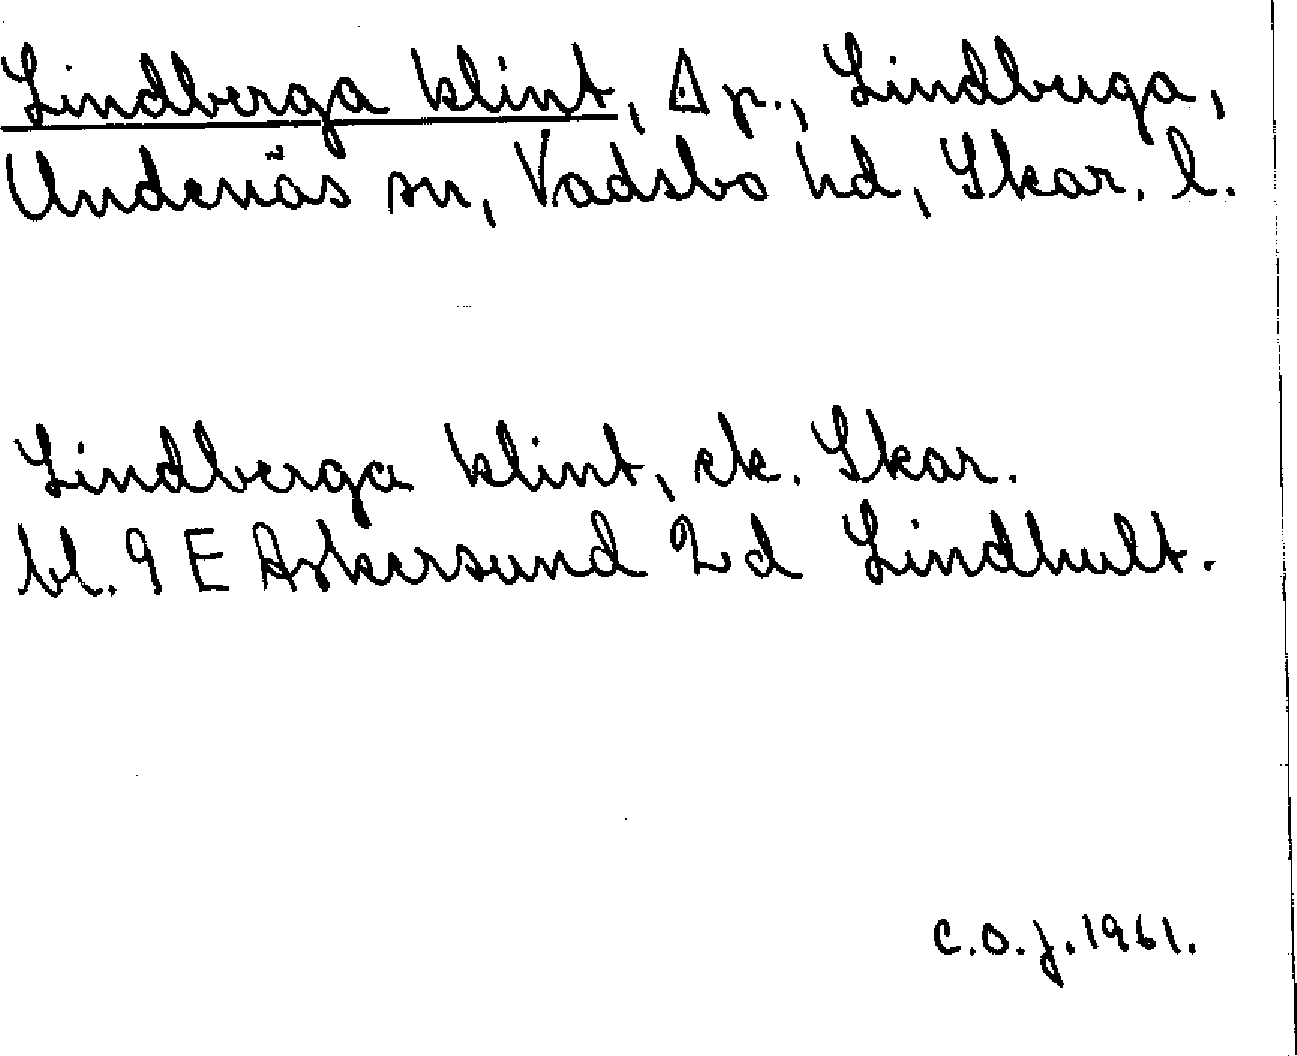 Lindberga klint, △ p., Lindberga,
Undenäs sn, Vadsbo hd, Skar. l.
Lindberga klint, ek. Skar.
bl. 9 E Askersund 2d Lindhult.
C.O.J. 1961.